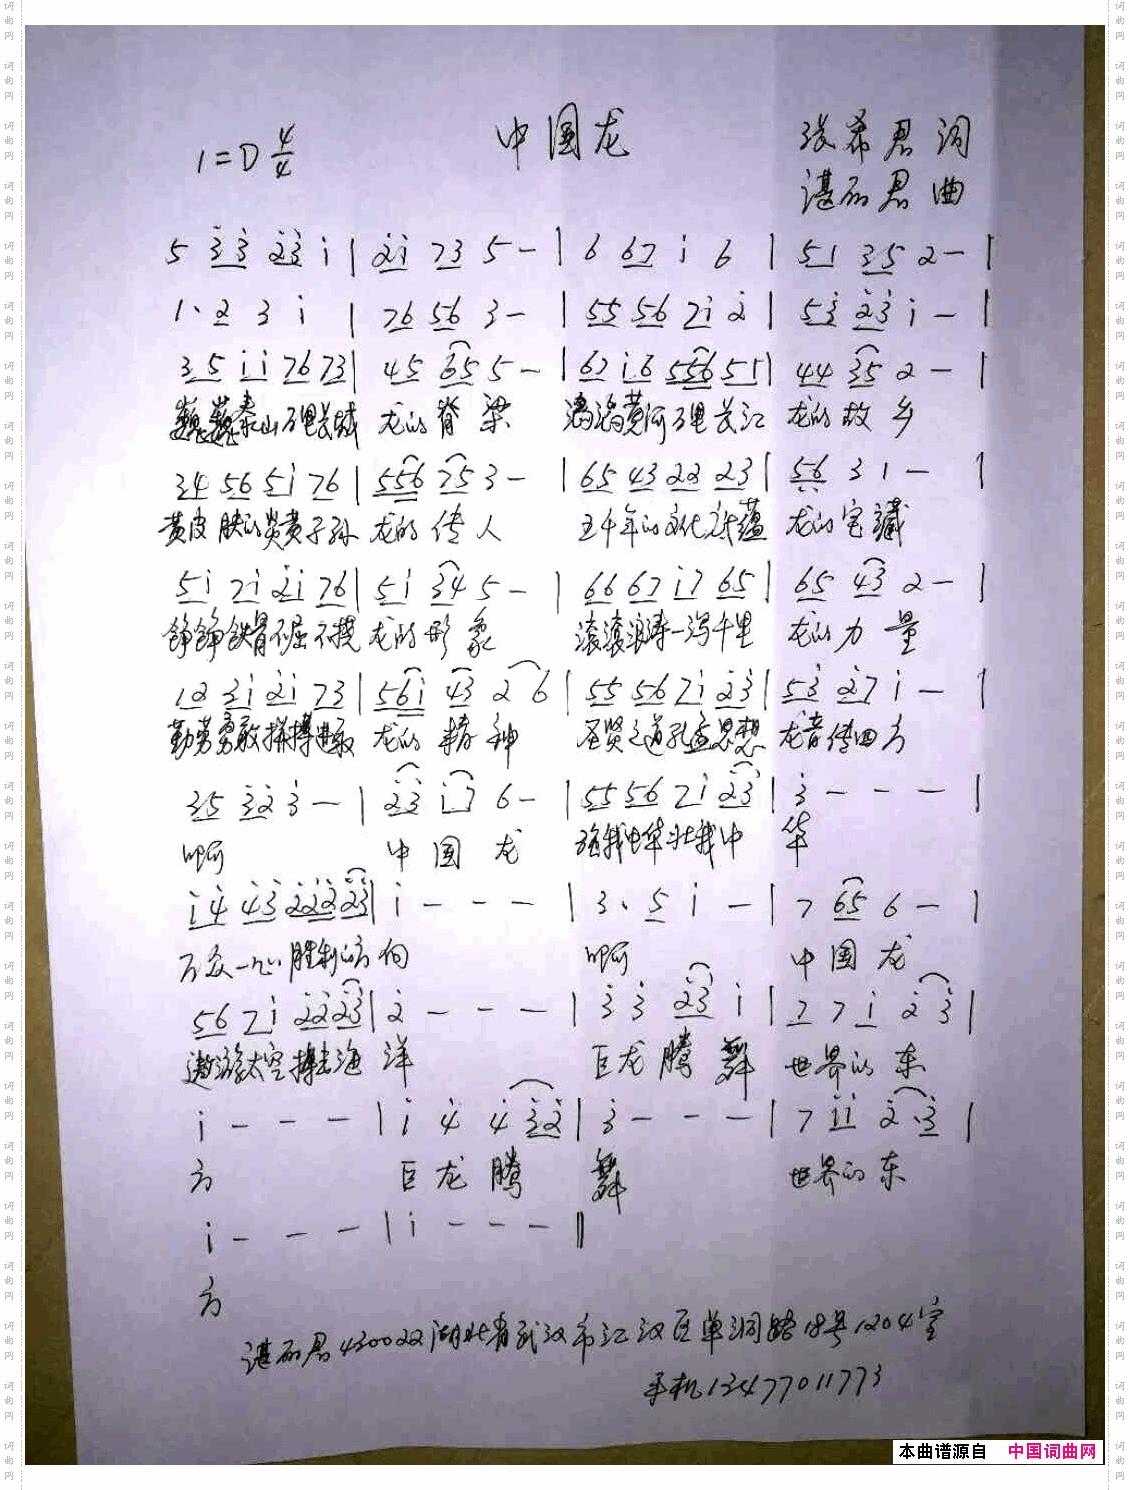 中国龙
1=D 4/4
张希君 词
谌丽君 曲
5 3̇3̇ 2̇3̇ i | 2̇i 73 5 - | 6 67 i 6 | 51 35 2 - |
1· 2 3 i | 76 56 3 - | 55 56 7i 2̇ | 53̇ 2̇3̇ i - |
35 ii 76 73 | 45 65 5 - | 67 i6 556 51 | 44 35 2 - |
巍巍泰山万里长城 龙的脊梁 滔滔黄河万里长江 龙的故乡
34 56 5i 76 | 556 75 3 - | 65 43 22 23 | 5̣6̣ 3 1 - |
黄皮肤的炎黄子孙 龙的传人 五千年的文化底蕴 龙的宝藏
5i 7i 2̇i 76 | 5i 34 5 - | 66 67 i7 65 | 65 43 2 - |
铮铮铁骨不屈不挠 龙的形象 滚滚浪涛一泻千里 龙的力量
12 3i 2̇i 73 | 56i 43 2 6 | 55 56 7i 2̇3̇ | 53̇ 2̇7 i - |
勤劳勇敢拼搏进取 龙的精神 圣贤之道孔孟思想 龙音传四方
35 3̇2̇ 3̇ - | 2̇3̇ i7 6 - | 55 56 7i 2̇3̇ | 3̇ - - - |
啊 中国龙 强我中华壮我中华
i4̇ 4̇3̇ 2̇2̇2̇ 2̇3̇ | i - - - | 3· 5 i - | 7 65 6 - |
万众一心胜利的方向 啊 中国龙
56 7i 2̇2̇ 2̇3̇ | 2̇ - - - | 3̇ 3̇ 2̇3̇ i | 7 7 i 2̇ 3̇ |
遨游太空搏击海洋 巨龙腾舞 世界的东
i - - - | i 4̇ 4̇ 3̇2̇ | 3̇ - - - | 7 ii 2̇·3̇ |
方 巨龙腾舞 世界的东
i - - - | i - - - ‖
方
谌丽君430022湖北省武汉市江汉区单洞路18号1204室
手机13477011773
本曲谱源自 中国词曲网